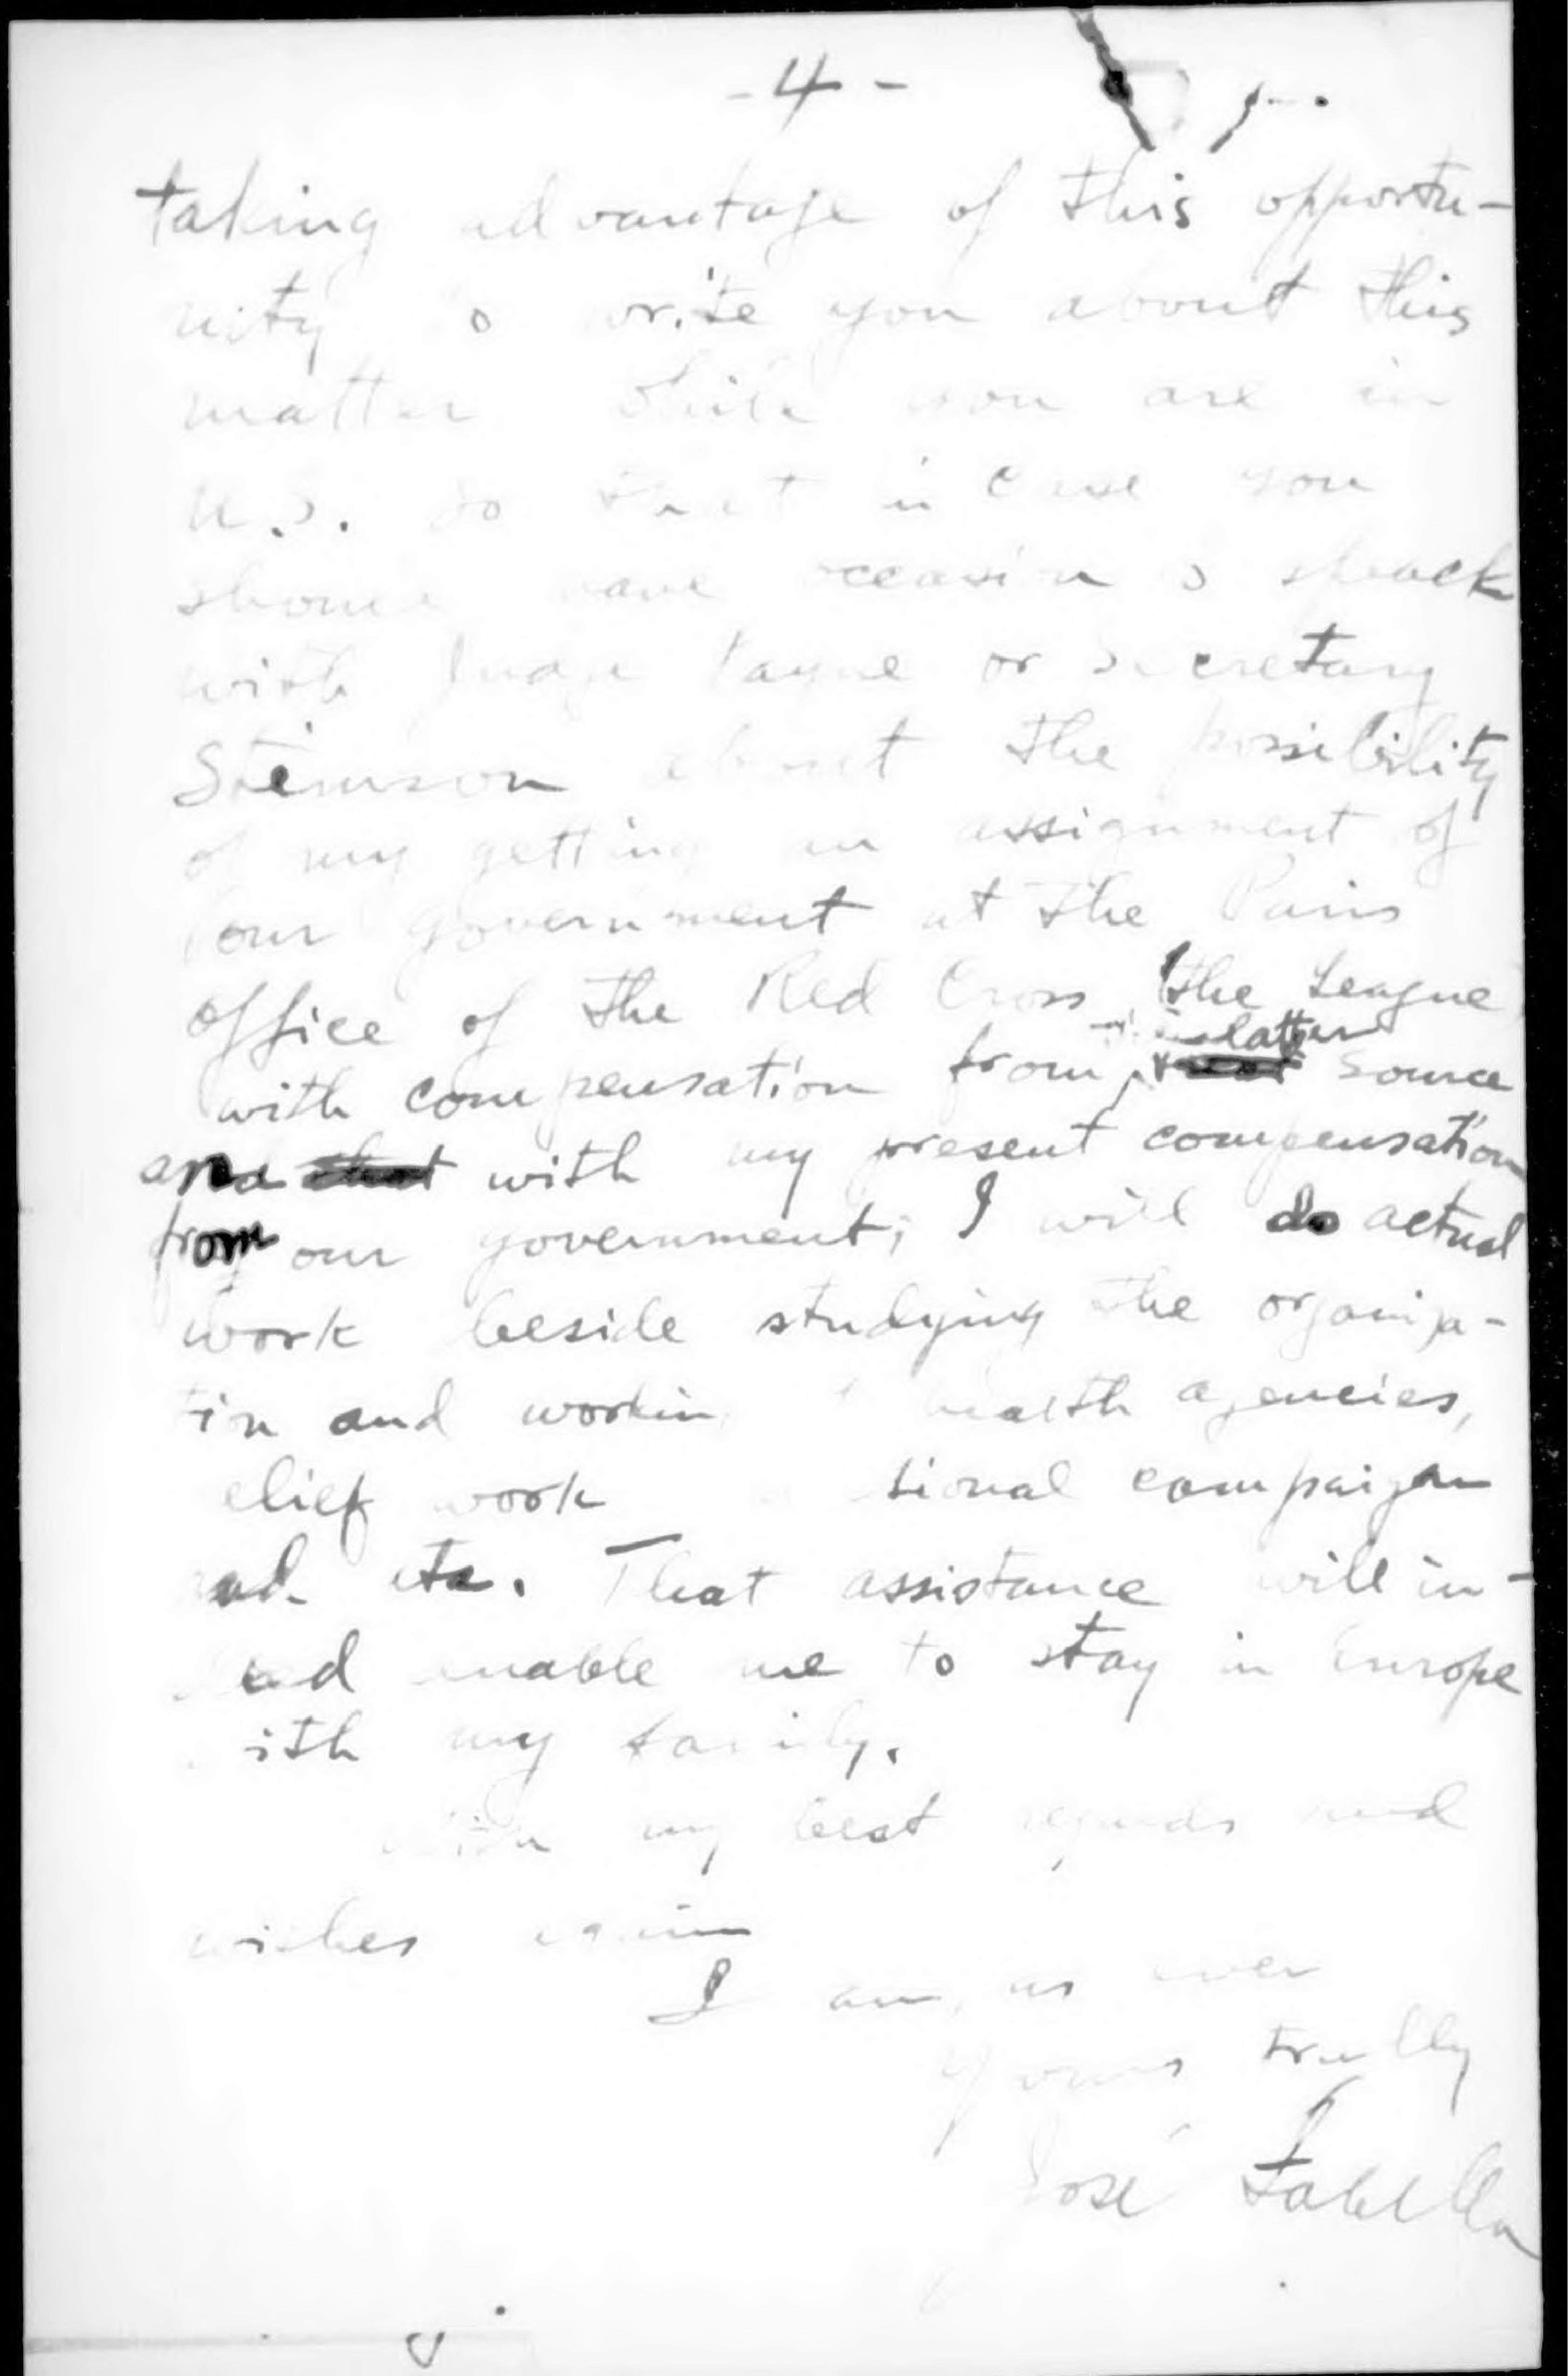 - 4 -
taking advantage of this opportu-
nity to write you about this
matter while you are in
U.S. so that in case you
should have occasion to speack
with Judge Payne or Secretary
Stimson about the possibility
of my getting an assignment of
our government at the Paris
Office of the Red Cross, the League
with compensation from latter source
and with my present compensation
from our government; I will do actual
work beside studying the organiza-
tion and working health agencies,
relief work campaign
and etc. That assistance will in-
deed enable me to stay in Europe
with my family.
With my best regards and
wishes again
I am, as ever
Yours trully
José Fabella